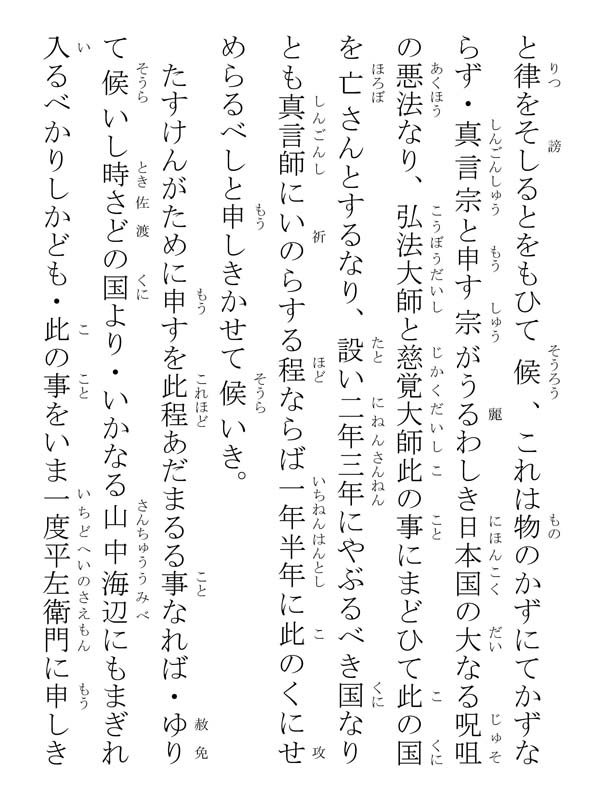 と律をそしるとをもひて候、これは物のかずにてかずな
らず・真言宗と申す宗がうるわしき日本国の大なる呪咀
の悪法なり、弘法大師と慈覚大師此の事にまどひて此の国
を亡さんとするなり、設い二年三年にやぶるべき国なり
とも真言師にいのらする程ならば一年半年に此のくにせ
めらるべしと申しきかせて候いき。
たすけんがために申すを此程あだまるる事なれば・ゆり
て候いし時さどの国より・いかなる山中海辺にもまぎれ
入るべかりしかども・此の事をいま一度平左衛門に申しき